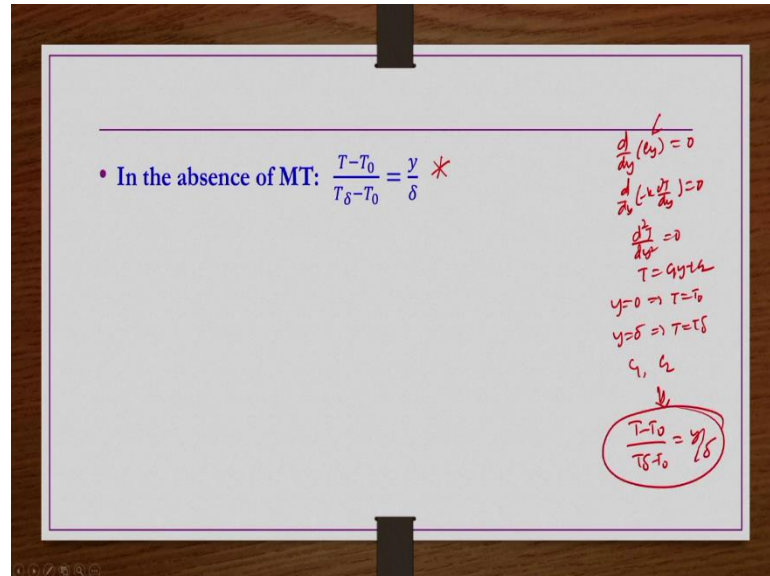 • In the absence of MT: (T−T₀)/(T_δ−T₀) = y/δ *
d/dy (e_y) = 0
d/dy (-k dT/dy) = 0
d²T/dy² = 0
T = C₁y+C₂
y=0 ⇒ T=T₀
y=δ ⇒ T=Tδ
C₁, C₂
↓
(T-T₀)/(Tδ-T₀) = y/δ